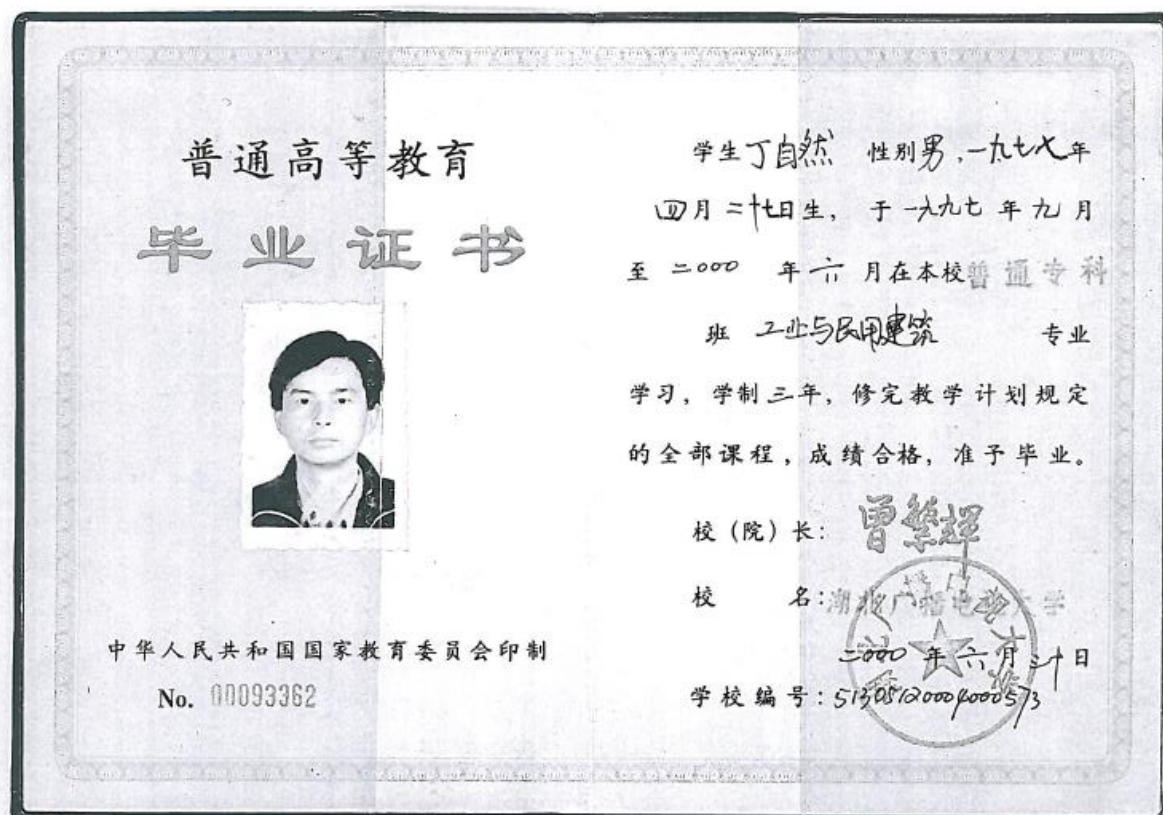 普通高等教育
毕业证书
中华人民共和国国家教育委员会印制
No. 00093362
学生丁自然 性别男,一九七七年
四月二十七日生, 于一九九七年九月
至二000 年六月在本校普通专科
班 工业与民用建筑 专业
学习, 学制三年, 修完教学计划规定
的全部课程, 成绩合格, 准予毕业。
校(院)长: 曾繁辉
校 名: 湖北广播电视大学
二000年六月三十日
学校编号: 51305120004000573